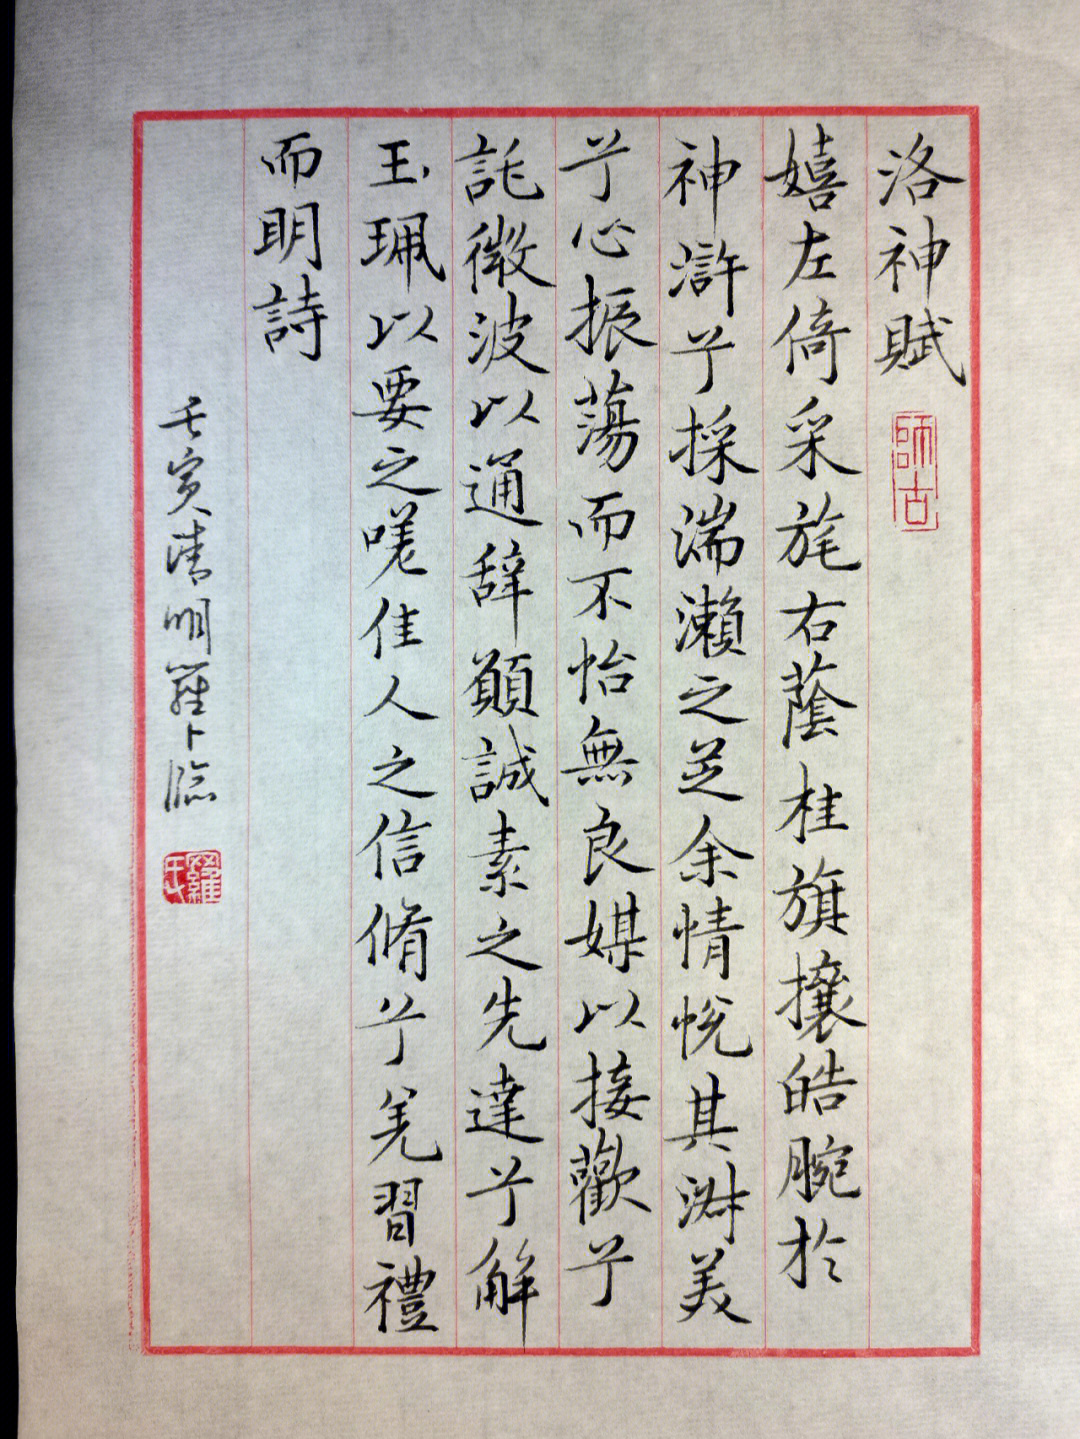 洛神賦
師古
嬉左倚采旄右蔭桂旗攘皓腕於
神滸兮採湍瀨之芝余情悅其淑美
兮心振蕩而不怡無良媒以接歡兮
託微波以通辞願誠素之先達兮解
玉珮以要之嗟佳人之信脩兮羌習禮
而明詩
壬寅清明羅卜臨
羅氏